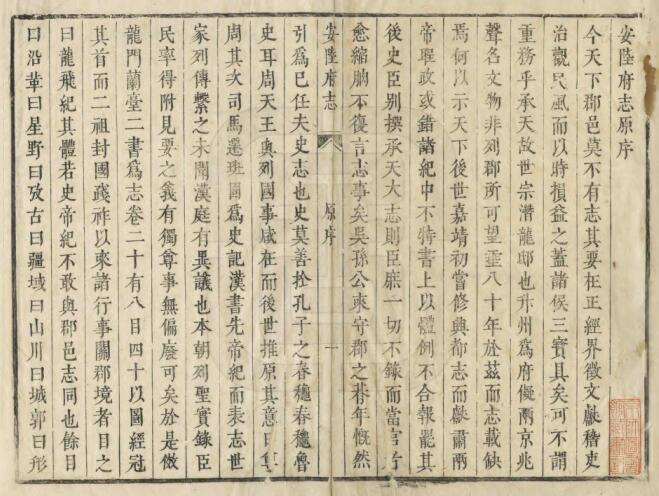 安陸府志原序
今天下郡邑莫不有志其要在正經界徵文獻稽吏
治觀民風而以時損益之蓋諸侯三寳具矣可不謂
重務乎承天故世宗潛龍邸也升州爲府儗兩京兆
聲名文物非列郡所可望至八十年於茲而志載缺
焉何以示天下後世嘉靖初嘗修興都志而獻肅兩
帝聖政或錯諸紀中不特書上以體例不合報罷其
後史臣别撰承天大志則臣庶一切不錄而當官者
愈縮朒不復言志事矣吳孫公來守郡之朞年慨然
安陸府志
原序
一
引爲己任夫史志也史莫善於孔子之春穐春穐魯
史耳周天王與列國事咸在而後世推原其意曰隻
周其次司馬遷班固爲史記漢書先帝紀而表志世
家列傳繫之未聞漢庭有異議也本朝列聖實錄臣
民率得附見要之義有獨尊事無偏廢可矣於是倣
龍門蘭臺二書爲志卷二十有八目四十以圖經冠
其首而二祖封國踐祚以來諸行事關郡境者目之
曰龍飛紀其體若史帝紀不敢與郡邑志同也餘目
曰沿革曰星野曰攷古曰疆域曰山川曰城郭曰形